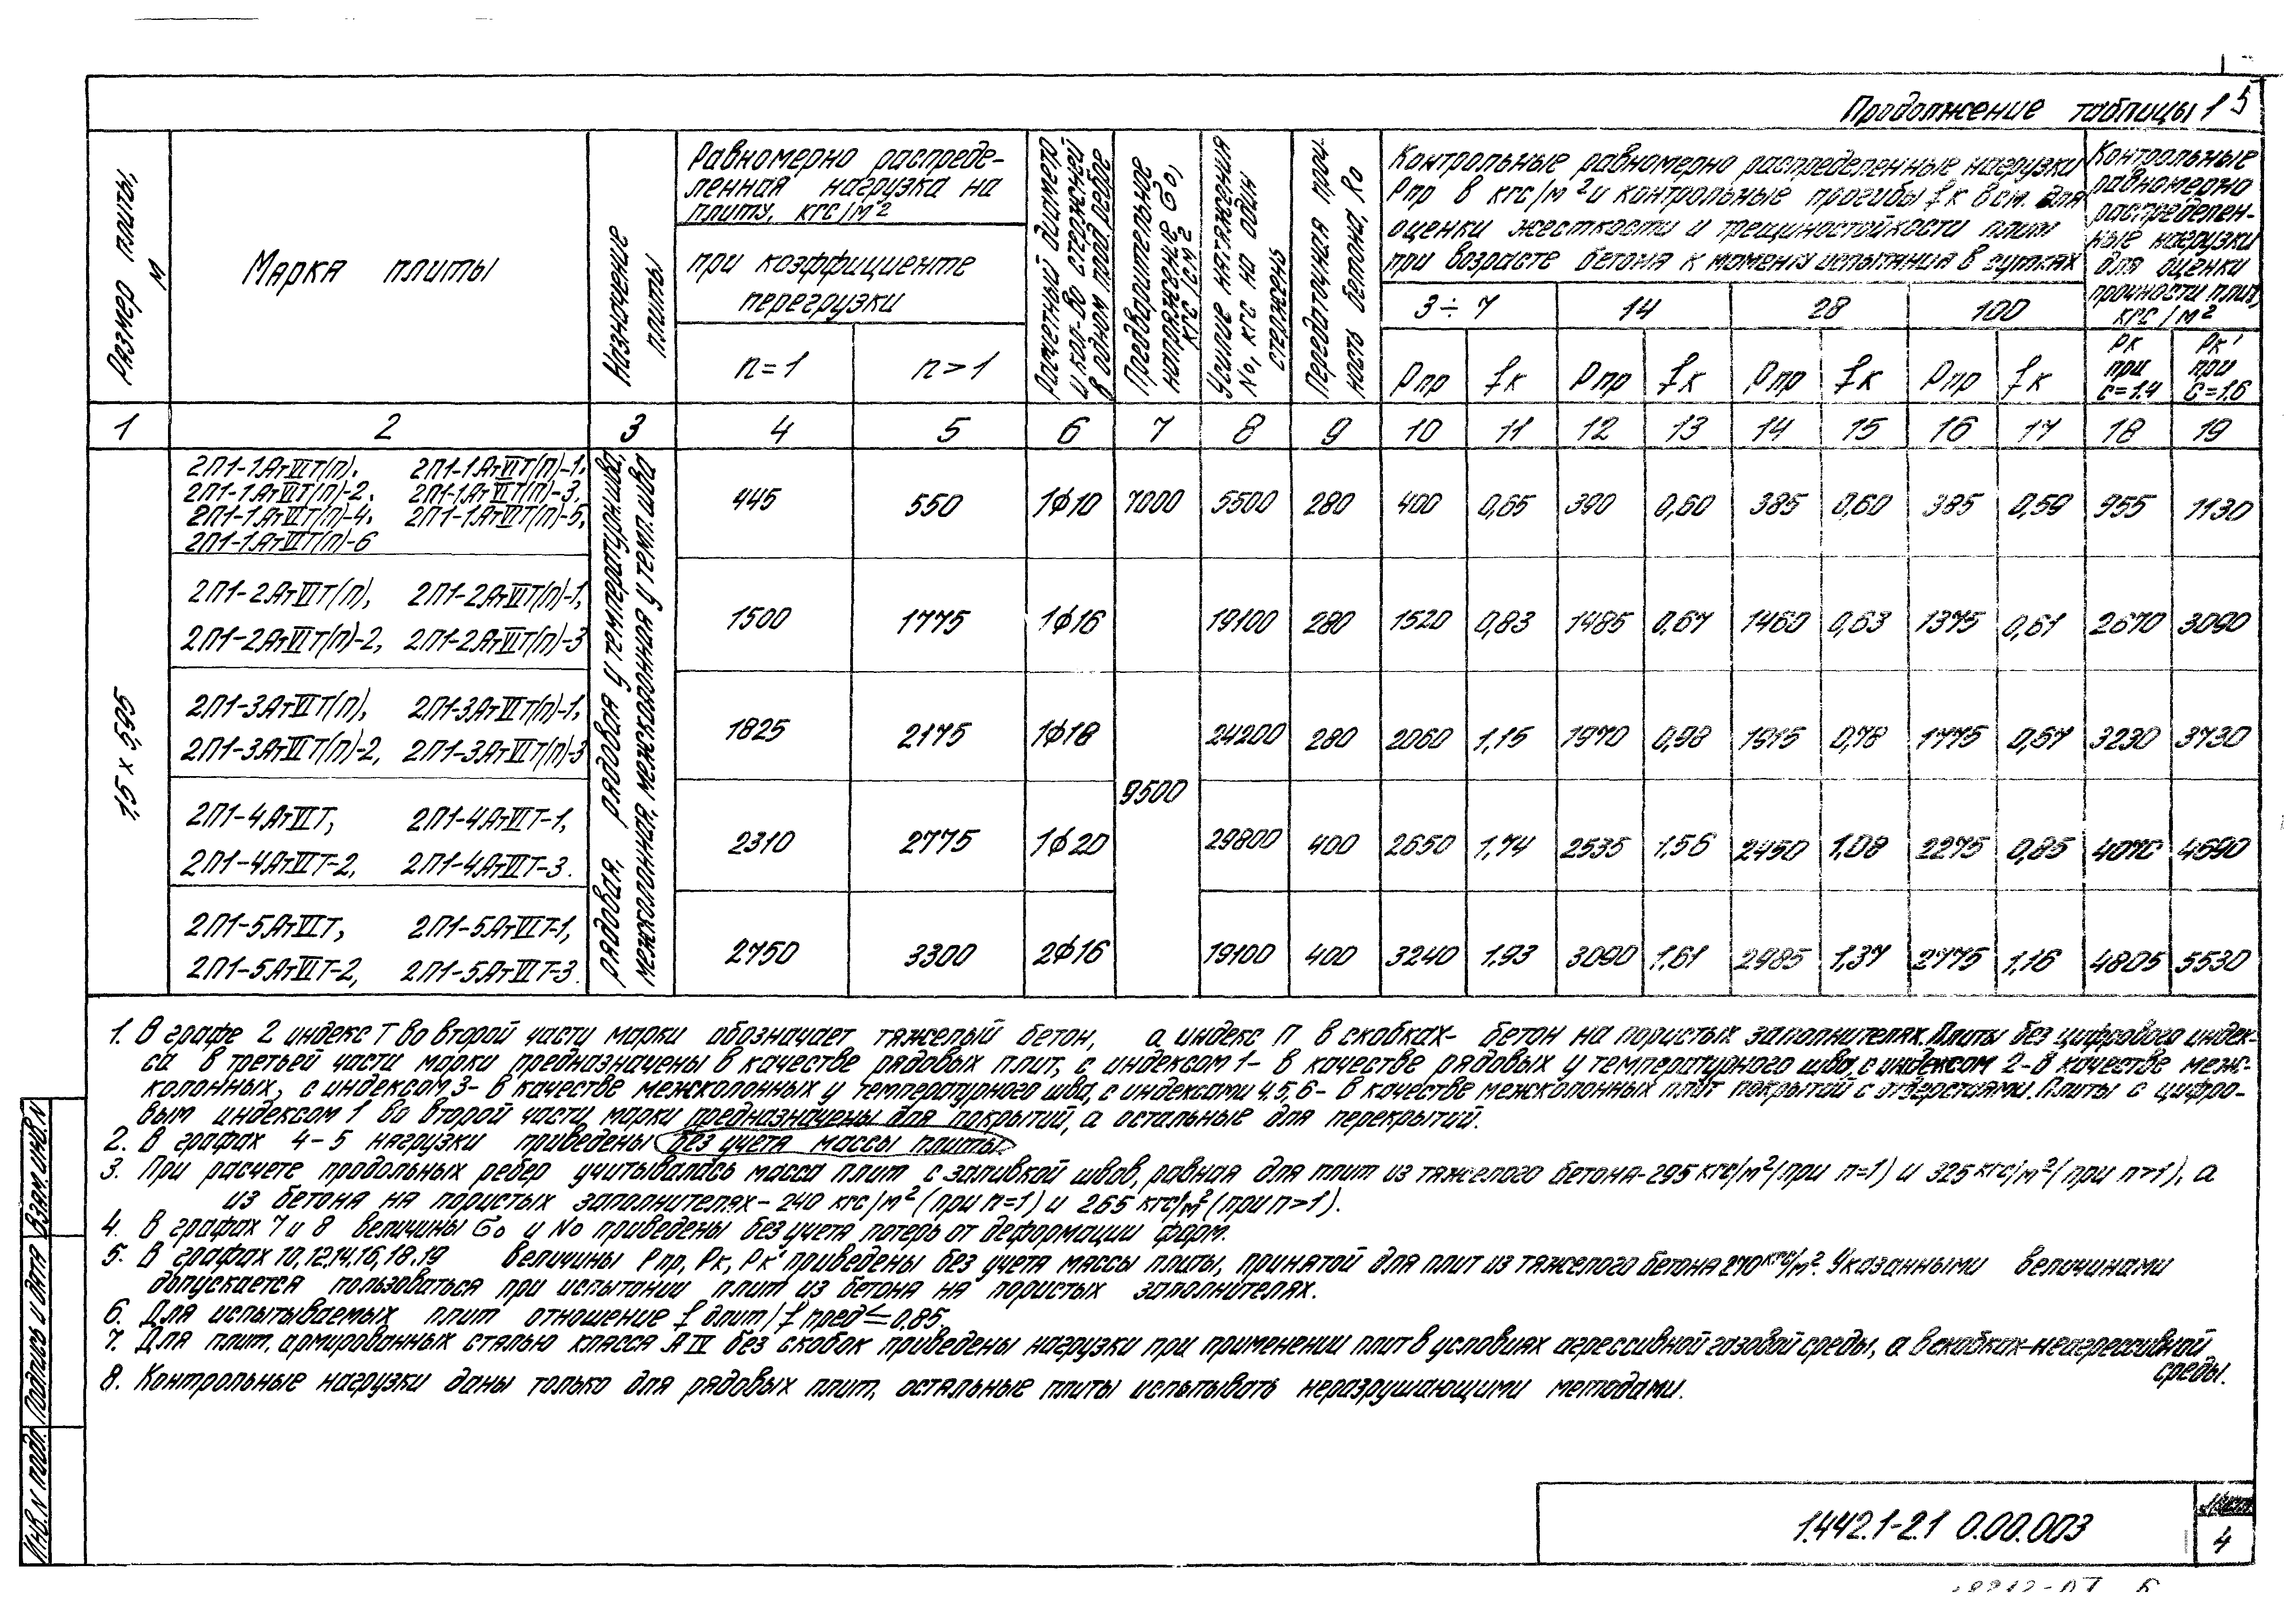 Продолжение таблицы 1
5
Размер плиты, м
Марка плиты
Назначение плиты
Равномерно распреде-
ленная нагрузка на
плиту, кгс/м²
при коэффициенте
перегрузки
n=1
n>1
Расчетный диаметр
и кол-во стержней
в одном прод. ребре
Предварительное
напряжение σ0,
кгс/см²
Усилие натяжения
N0, кгс на один
стержень
Передаточная проч-
ность бетона, R0
Контрольные равномерно распределенные нагрузки
Рпр в кгс/м² и контрольные прогибы fк в см. для
оценки жесткости и трещиностойкости плит
при возрасте бетона к моменту испытания в сутках
3÷7 14 28 100
Рпр fк Рпр fк Рпр fк Рпр fк
Контрольные
равномерно
распределен-
ные нагрузки
для оценки
прочности плит,
кгс/м²
Рк при С=1.4
Рк' при С=1.6
1 2 3 4 5 6 7 8 9 10 11 12 13 14 15 16 17 18 19
1,5 × 5,595
рядовая, рядовая у температурн.шва,
межколонная, межколонная у темп.шва
2П1-1АтVIТ(П), 2П1-1АтVIТ(П)-1,
2П1-1АтVIТ(П)-2, 2П1-1АтVIТ(П)-3,
2П1-1АтVIТ(П)-4, 2П1-1АтVIТ(П)-5,
2П1-1АтVIТ(П)-6
445 550 1ф10 7000 5500 280 400 0,65 390 0,60 385 0,60 385 0,59 955 1130
2П1-2АтVIТ(П), 2П1-2АтVIТ(П)-1,
2П1-2АтVIТ(П)-2, 2П1-2АтVIТ(П)-3
1500 1775 1ф16 19100 280 1520 0,83 1485 0,67 1460 0,63 1375 0,61 2670 3090
2П1-3АтVIТ(П), 2П1-3АтVIТ(П)-1,
2П1-3АтVIТ(П)-2, 2П1-3АтVIТ(П)-3
1825 2175 1ф18 24200 280 2060 1,15 1970 0,98 1915 0,78 1775 0,67 3230 3730
9500
2П1-4АтVIТ, 2П1-4АтVIТ-1,
2П1-4АтVIТ-2, 2П1-4АтVIТ-3.
2310 2775 1ф20 29800 400 2650 1,74 2535 1,56 2450 1,08 2275 0,85 4070 4690
2П1-5АтVIТ, 2П1-5АтVIТ-1,
2П1-5АтVIТ-2, 2П1-5АтVIТ-3.
2750 3300 2ф16 19100 400 3240 1.93 3090 1,61 2985 1,37 2775 1,16 4805 5530
1. В графе 2 индекс Т во второй части марки обозначает тяжелый бетон, а индекс П в скобках- бетон на пористых заполнителях. Плиты без цифрового индек-
са в третьей части марки предназначены в качестве рядовых плит, с индексом 1- в качестве рядовых у температурного шва, с индексом 2-в качестве меж-
колонных, с индексом 3- в качестве межколонных у температурного шва, с индексами 4,5,6- в качестве межколонных плит покрытий с отверстиями. Плиты с цифро-
вым индексом 1 во второй части марки предназначены для покрытий, а остальные для перекрытий.
2. В графах 4-5 нагрузки приведены без учета массы плиты.
3. При расчете продольных ребер учитывалась масса плит с заливкой швов, равная для плит из тяжелого бетона-295 кгс/м² (при n=1) и 325 кгс/м² (при n>1), а
из бетона на пористых заполнителях-240 кгс/м² (при n=1) и 265 кгс/м² (при n>1).
4. В графах 7 и 8 величины σ0 и N0 приведены без учета потерь от деформации форм.
5. В графах 10,12,14,16,18,19 величины Рпр, Рк, Рк' приведены без учета массы плиты, принятой для плит из тяжелого бетона 270 кгс/м². Указанными величинами
допускается пользоваться при испытании плит из бетона на пористых заполнителях.
6. Для испытываемых плит отношение f длит/f пред ≤ 0.85.
7. Для плит, армированных сталью класса А IV без скобок приведены нагрузки при применении плит в условиях агрессивной газовой среды, а в скобках-неагрессивной
среды.
8. Контрольные нагрузки даны только для рядовых плит, остальные плиты испытывать неразрушающими методами.
Инв.N подл. Подпись и дата Взам.инв.N
1.442.1-2.1 0.00.003
Лист
4